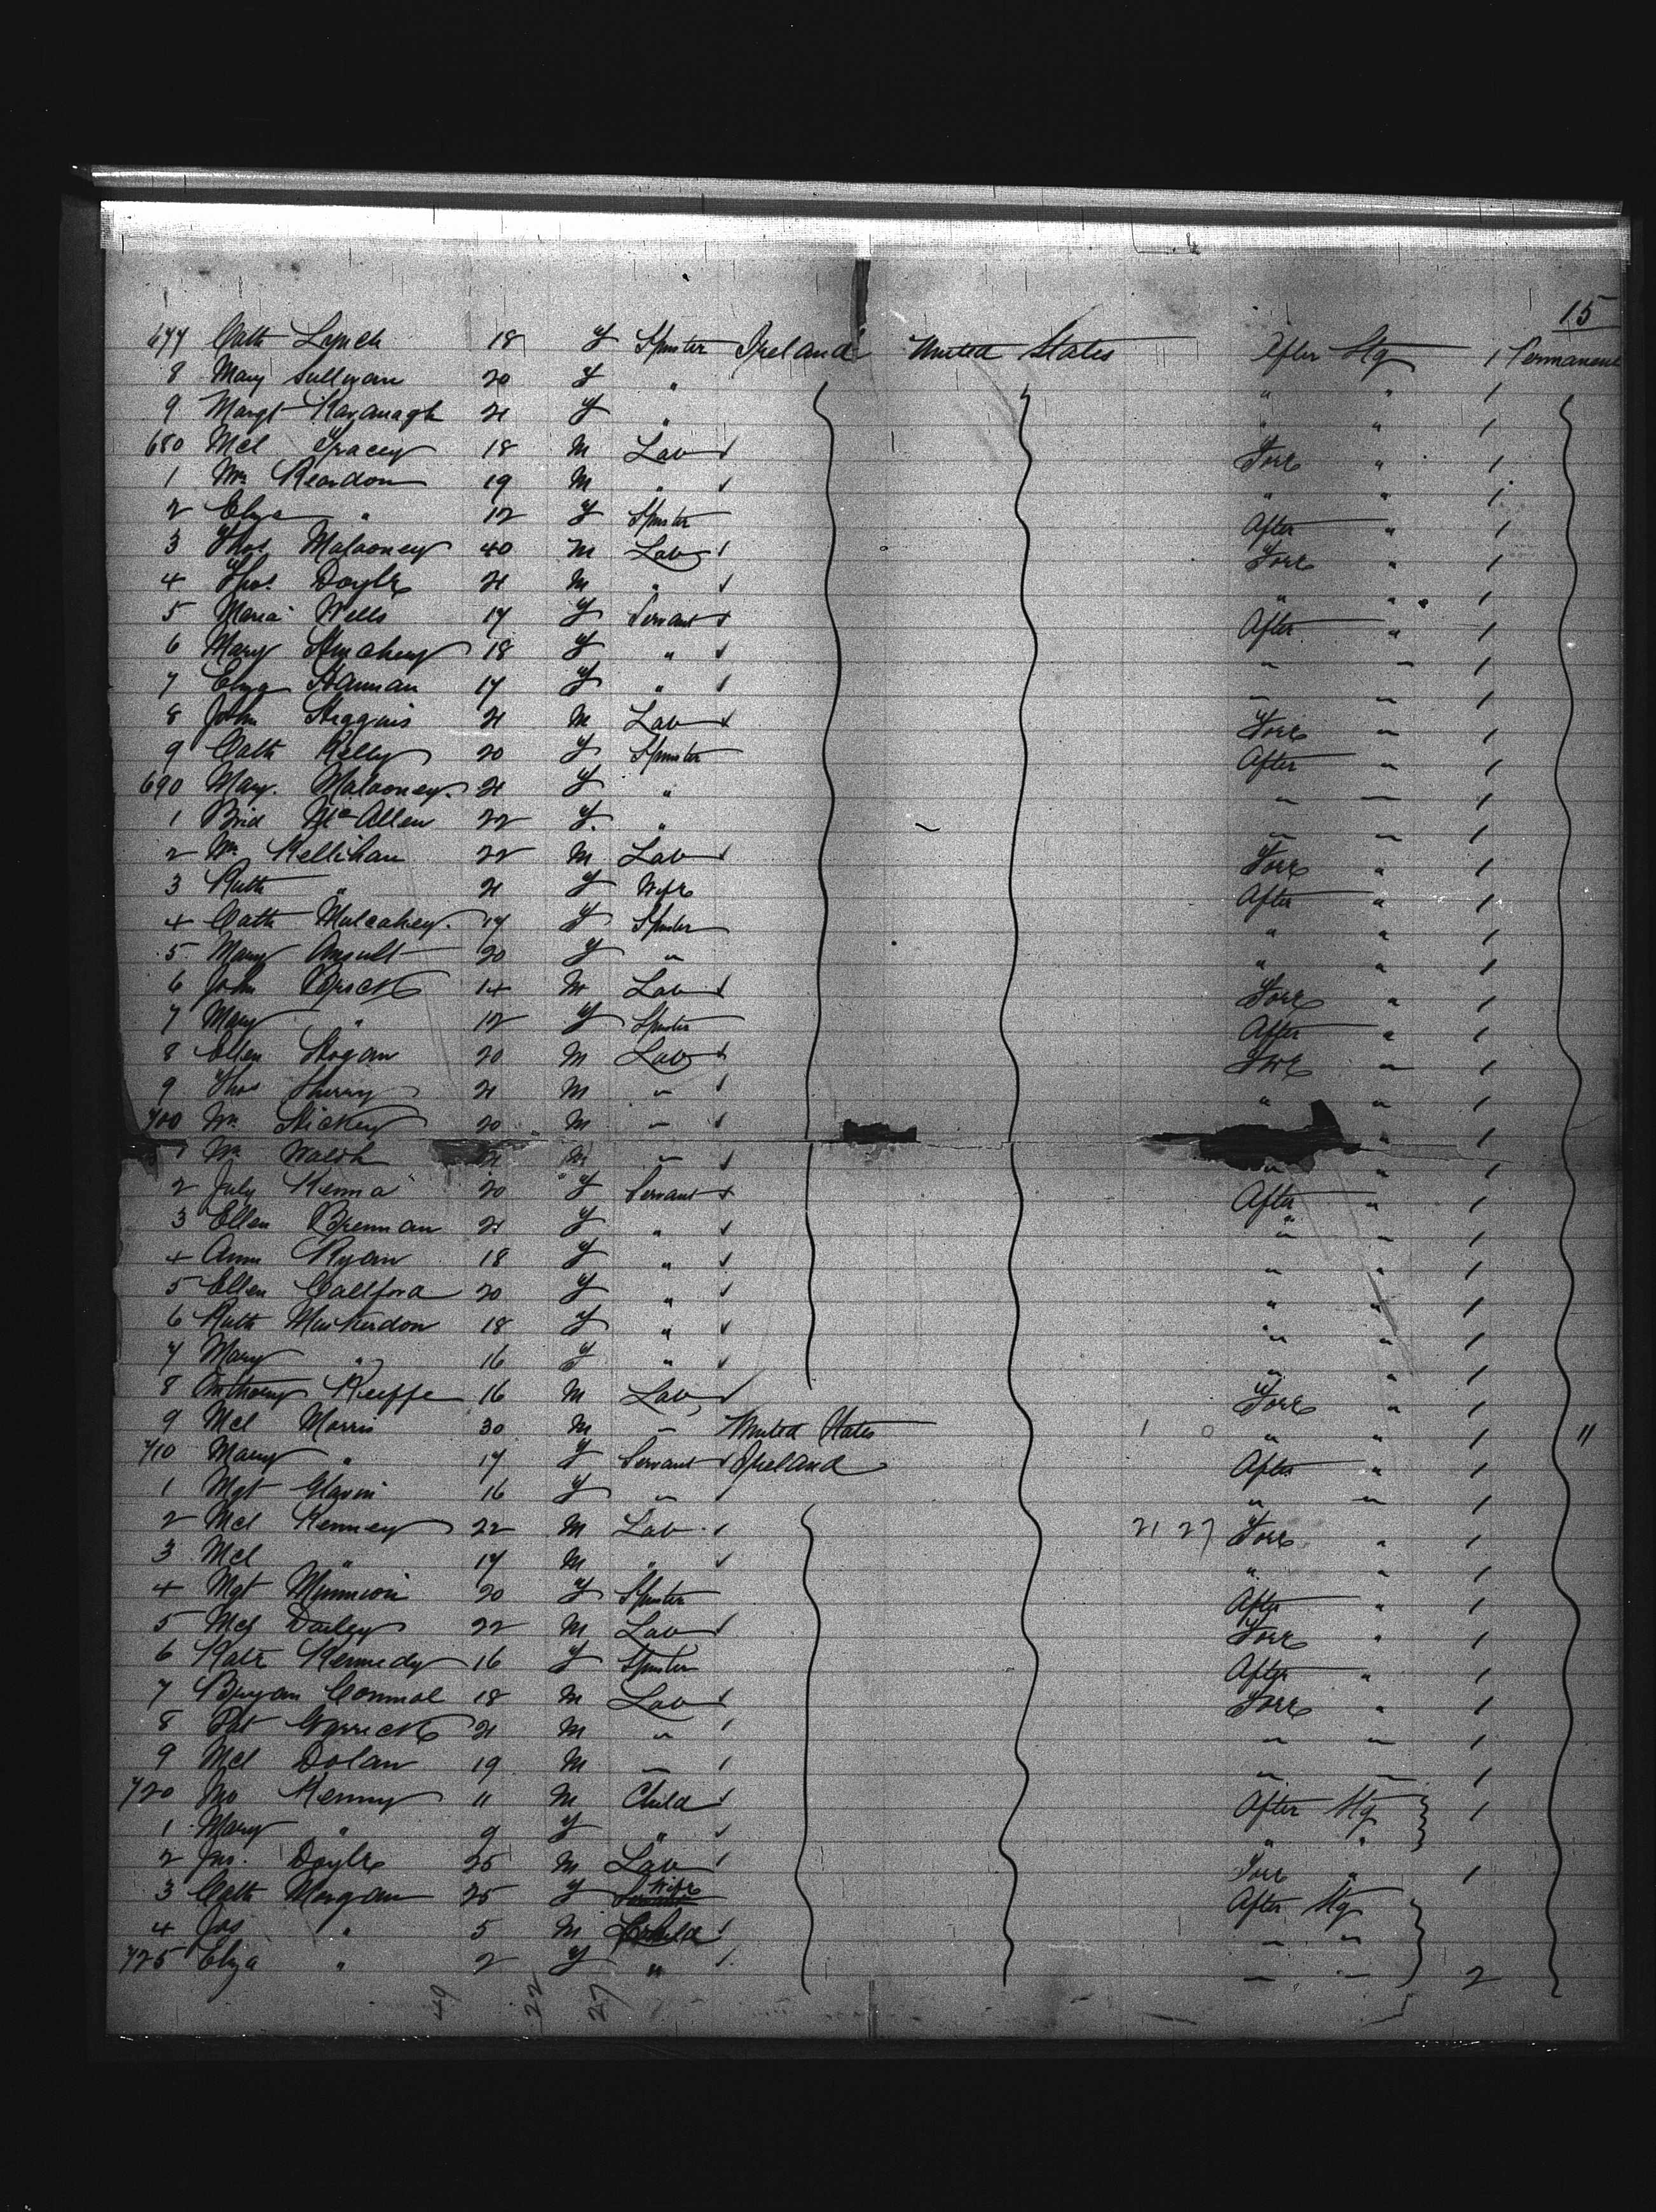 15
677 Cath Lynch 18 F Spinster Ireland United States After Stg 1 Permanent
8 Mary Sullivan 20 F " " " 1
9 Margt Kavanagh 21 F " " " 1
680 Mcl Gracey 18 M Lab Fore " 1
1 Wm Reardon 19 M " " " 1
2 Eliza " 12 F Spinster After " 1
3 Thos Malooney 40 M Lab Fore " 1
4 Thos. Doyle 21 M " " " 1
5 Maria Wells 17 F Servant After " 1
6 Mary 18 F " " " 1
7 Eliza Hannan 17 F " " " 1
8 John Higgins 21 M Lab Fore " 1
9 Cath Kelly 20 F Spinster After " 1
690 Mary. Malooney. 21 F " " " 1
1 Brid McAllen 22 F. " " " 1
2 Wm Kellihan 22 M Lab Fore " 1
3 Kath " 21 F Wife After " 1
4 Cath Mulcahey. 17 F Spinster " " 1
5 Mary 20 F " " " 1
6 John Brick 14 M Lab Fore " 1
7 Mary " 12 F Spinster After " 1
8 Ellen Hogan 20 M Lab Fore " 1
9 Thos Sherry 21 M " " " 1
700 Wm Hickey 20 M " " 1
1 Wm Walsh 21 M " " " 1
2 July Kenna 20 F Servant After " 1
3 Ellen Brennan 21 F " " " 1
4 Ann Ryan 18 F " " " 1
5 Ellen Callfora 20 F " " " 1
6 Kath 18 F " " " 1
7 Mary " 16 F " " " 1
8 Anthony Keeffe 16 M Lab Fore " 1
9 Mcl Morris 30 M " United States 1 0 " " 1 "
710 Mary " 17 F Servant Ireland After " 1
1 Mgt Glavin 16 F " " " 1
2 Mcl Kenney 22 M Lab 21 27 Fore " 1
3 Mcl " 17 M " " " 1
4 Mgt 20 F Spinster After " 1
5 Mcl Dailey 22 M Lab Fore " 1
6 Kate Kennedy 16 F Spinster After " 1
7 Bryan Conmal 18 M Lab Fore " 1
8 Pat Garrick 21 M " " " 1
9 Mcl Dolan 19 M " " " 1
720 Mo Kenny 11 M Child After Stg 1
1 Mary " 9 F " " "
2 Jas. Doyle 25 M Lab Fore " 1
3 Cath Morgan 25 F Wife After Stg
4 Jas " 5 M Child " "
725 Eliza " 2 F " " " 2
49 22 27